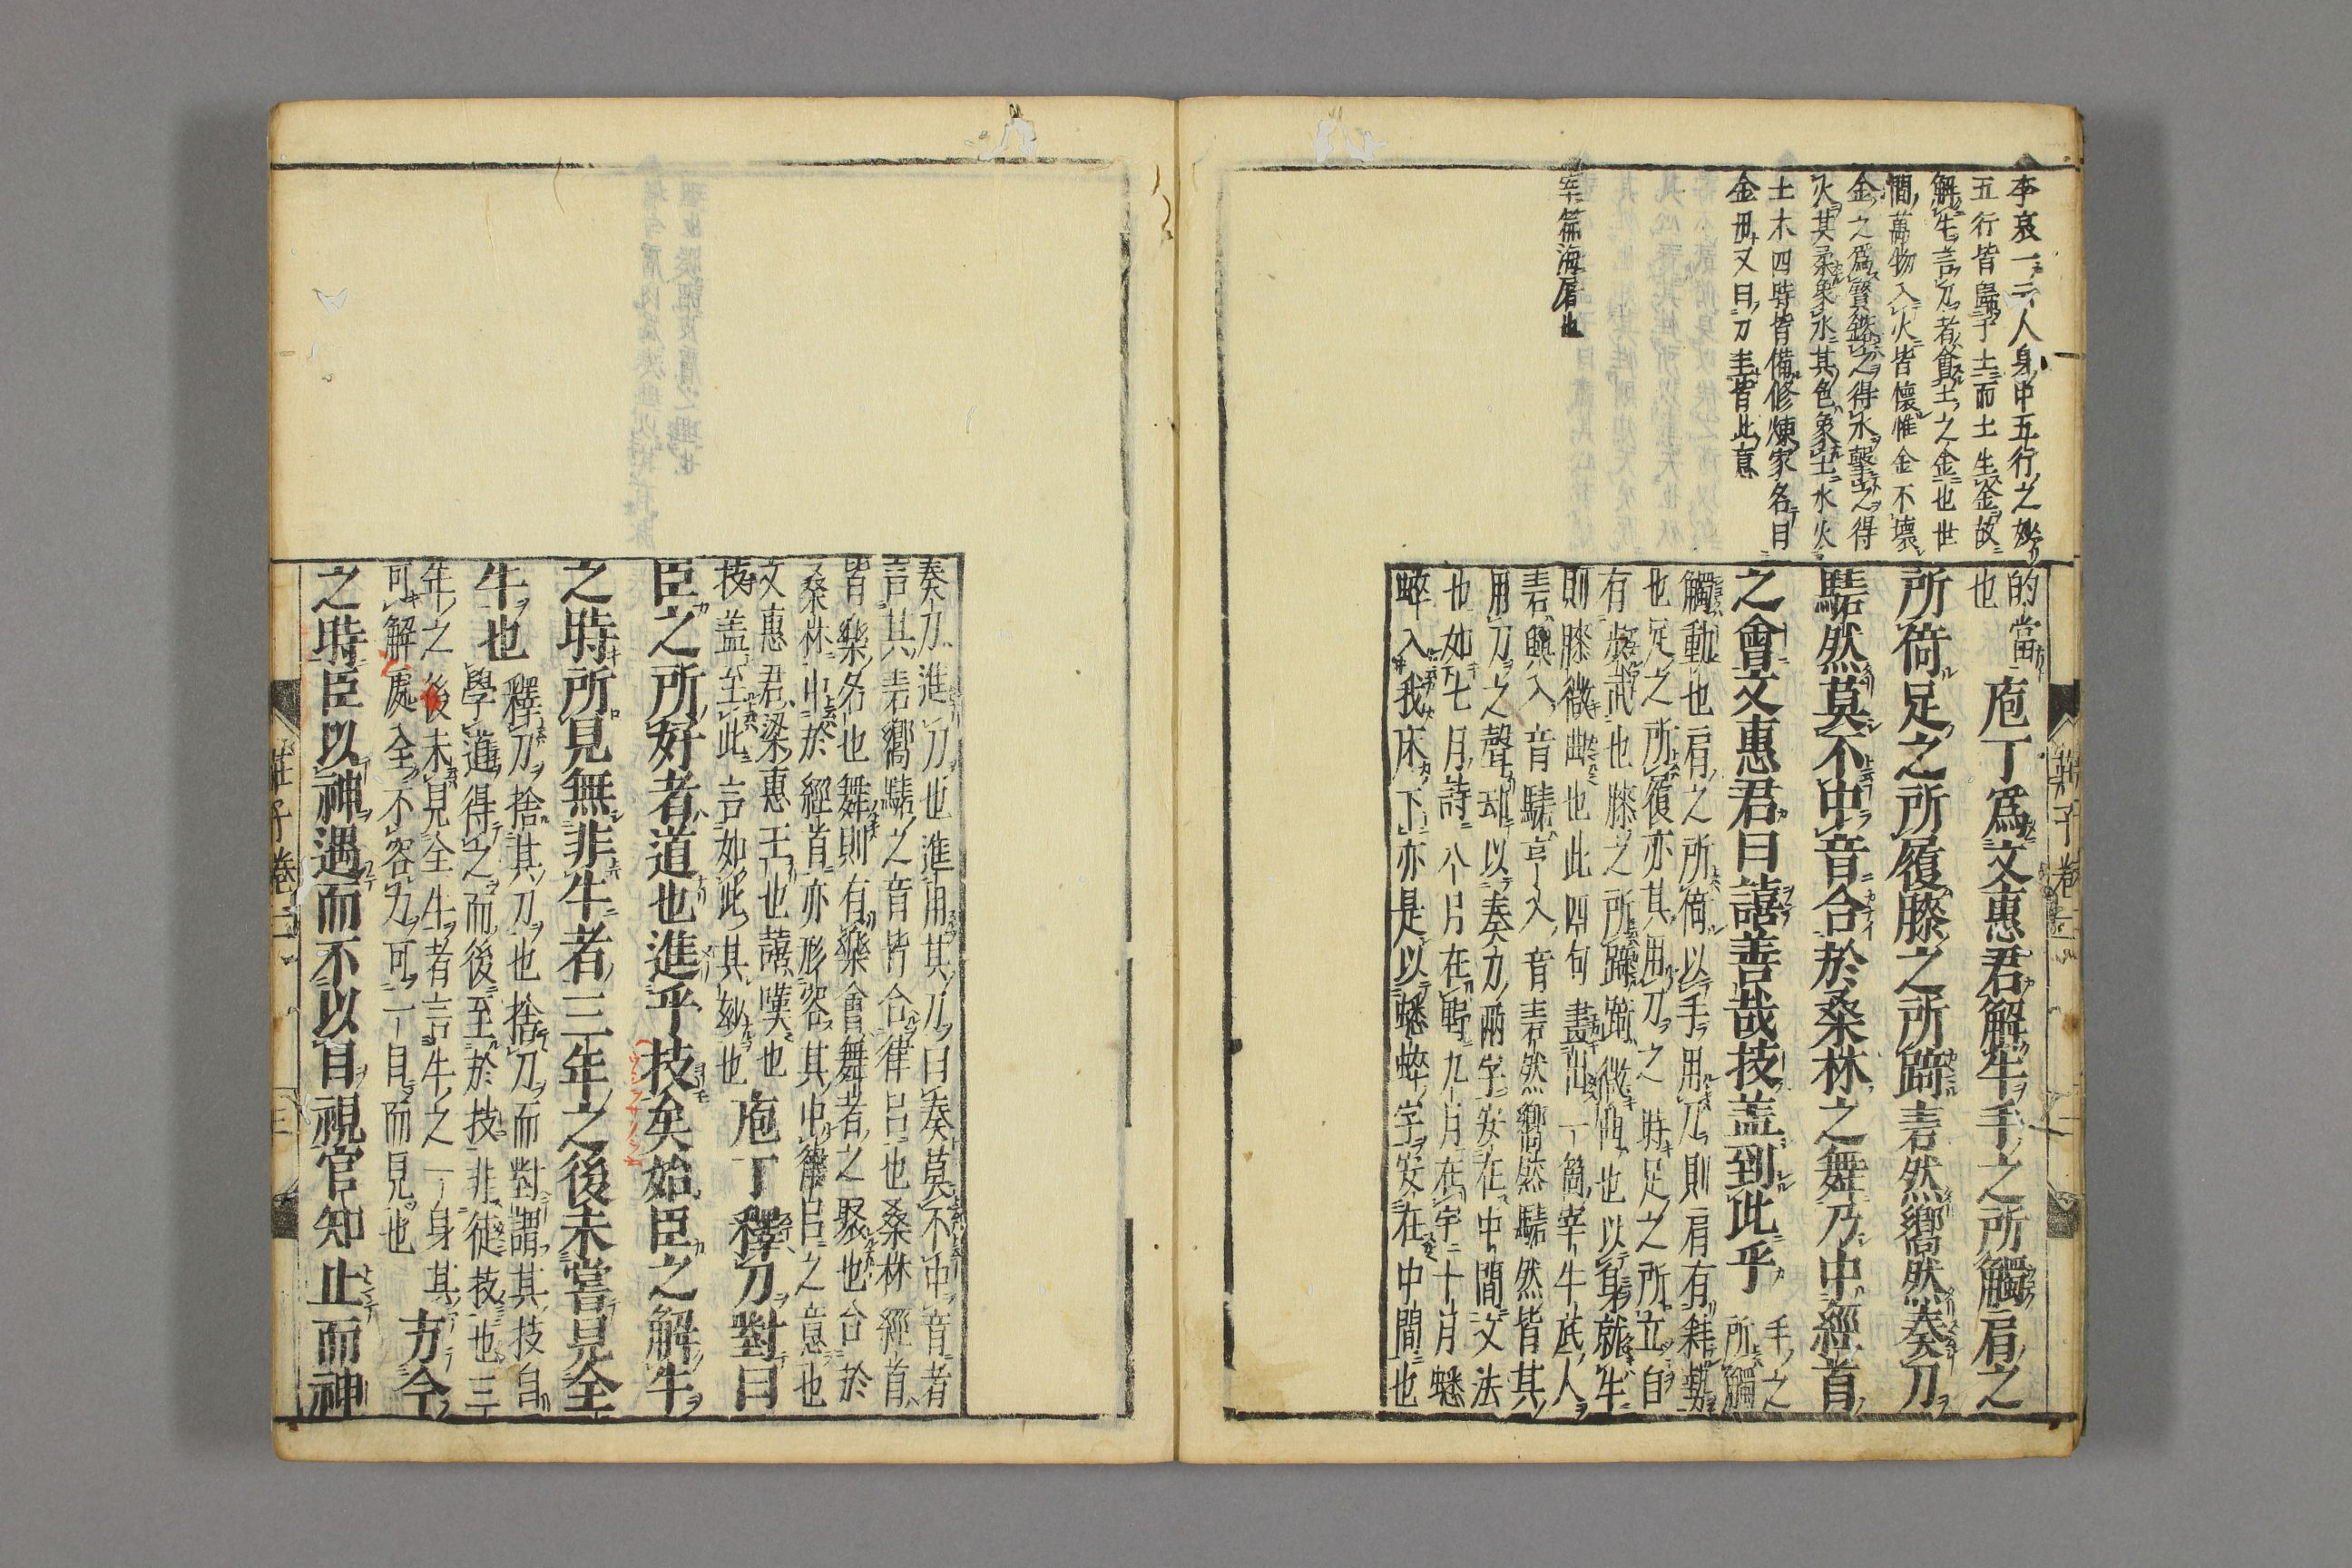 李哀一云人身中五行之妙
五行皆歸于土而土生金故
解牛言刀者食土之金也世
間萬物入火皆懷惟金不壞
金之爲寶鎔之得水擊之得
火其柔象水其色象土水火
土木四時皆備修煉家名曰
金丹又曰刀圭皆此意
宰篇海屠也
的當
也
庖丁爲文惠君解牛手之所觸肩之
所倚足之所履膝之所踦砉然嚮然奏刀
騞然莫不中音合於桑林之舞乃中經首
之會文惠君曰譆善哉技盖到此乎
手之
所觸
觸動也肩之所倚以手用刀則肩有斜勢
也足之所履亦其用刀之時足之所立自
有步武也膝之所踦微曲也以身就牛
則膝微曲也此四句畫出一箇宰牛底人
砉與入音騞亨入音砉然嚮然騞然皆其
用刀之聲却以奏刀兩字安在中間文法
也如七月詩八月在野九月在宇十月蟋
蟀入我床下亦是以蟋蟀字安在中間也
莊子卷二
奏刀進刀也進用其刀曰奏莫不中音者
言其砉嚮騞之音皆合律呂也桑林經首
皆樂名也舞則有樂會舞者之聚也合於
桑林中於經首亦形容其中律呂之意也
文惠君梁惠王也譆嘆也
技盖至此言如此其妙也
庖丁釋刀對曰
臣之所好者道也進乎技矣始臣之解牛
之時所見無非牛者三年之後未嘗見全
牛也
釋刀捨其刀也捨刀而對謂其技自
學道得之而後至於技非徒技也三
年之後未見全牛者言牛之一身其
可解處全不容力可一目而見也
方今
之時臣以神遇而不以目視官知止而神
莊子卷二
三